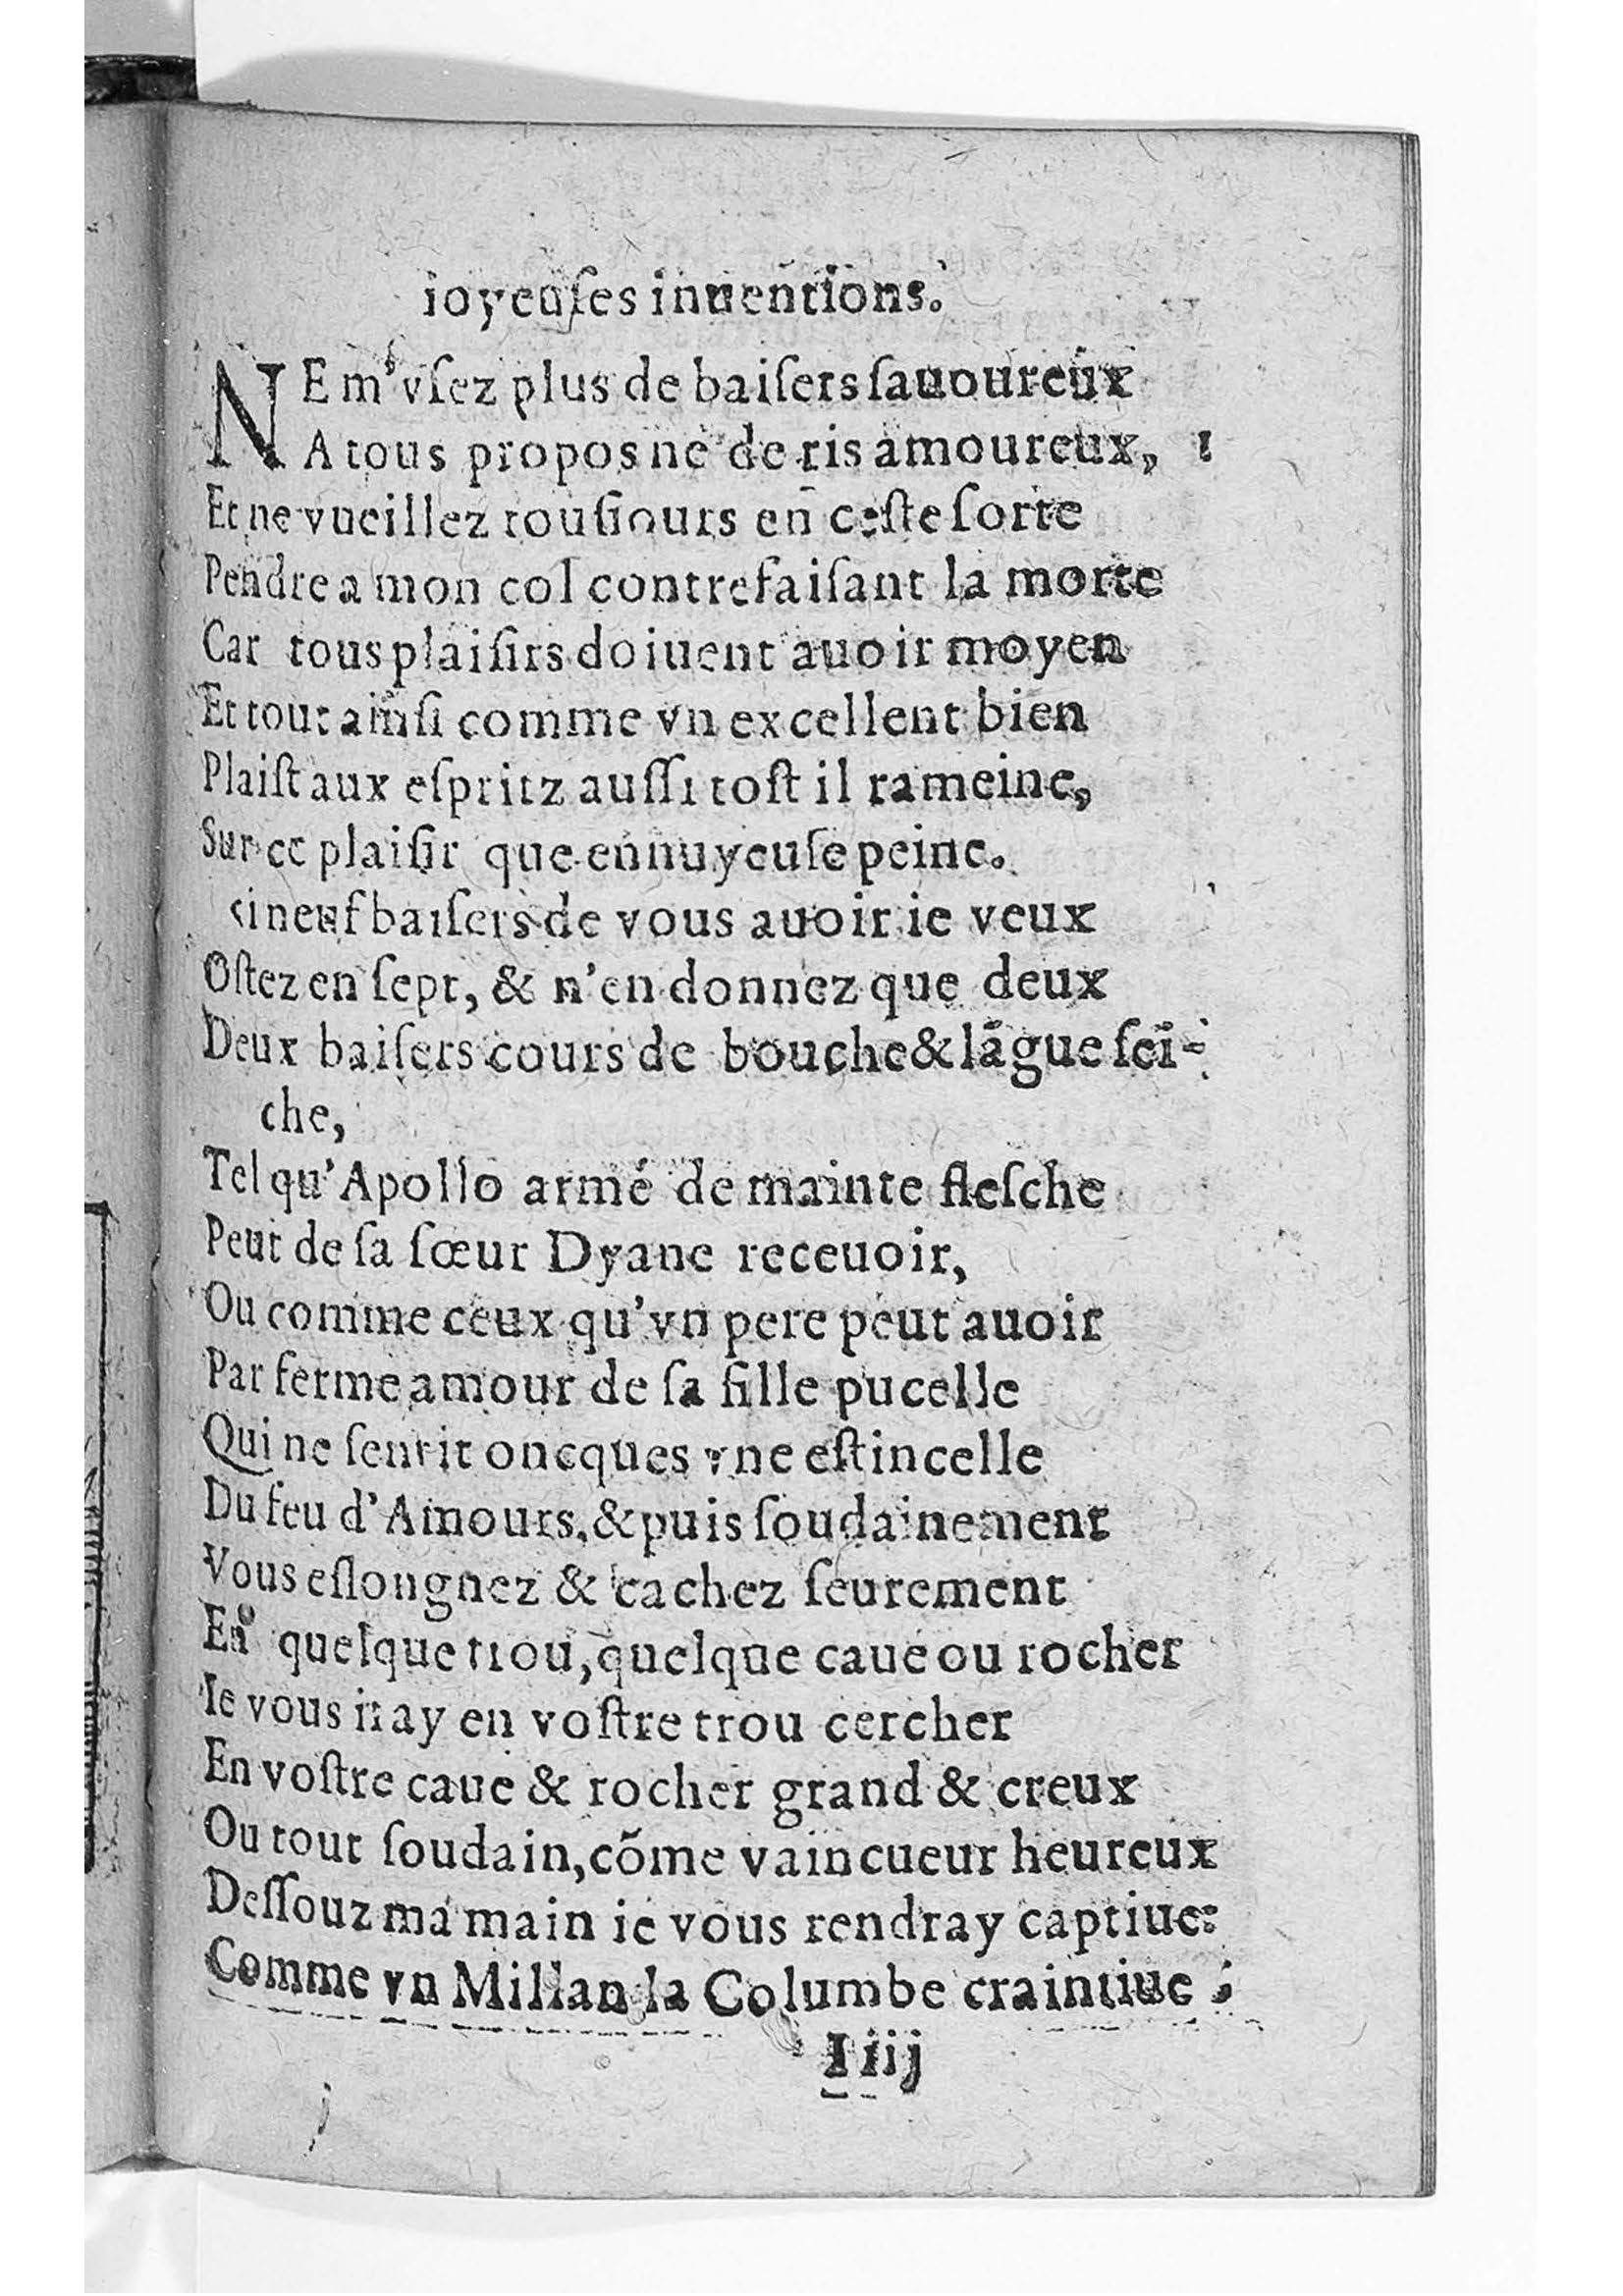 ioyeuſes inuentions.
NE m'vſez plus de baiſers ſauoureux
A tous propos ne de ris amoureux,
Et ne vueillez touſiours en ceſte ſorte
Pendre a mon col contrefaiſant la morte
Car tous plaiſirs doiuent auoir moyen
Et tout ainſi comme vn excellent bien
Plaiſt aux eſpritz auſſi toſt il rameine,
Sur ce plaiſir que ennuyeuſe peine.
Si neuf baiſers de vous auoir ie veux
Oſtez en ſept, & n'en donnez que deux
Deux baiſers cours de bouche & lāgue ſei-
che,
Tel qu'Apollo armé de mainte fleſche
Peut de ſa ſœur Dyane receuoir,
Ou comme ceux qu'vn pere peut auoir
Par ferme amour de ſa fille pucelle
Qui ne ſentit oncques vne eſtincelle
Du feu d'Amours, & puis ſoudainement
Vous eſlongnez & cachez ſeurement
En quelque trou, quelque caue ou rocher
Ie vous iray en voſtre trou cercher
En voſtre caue & rocher grand & creux
Ou tout ſoudain, cōme vaincueur heureux
Deſſouz ma main ie vous rendray captiue:
Comme vn Millan la Columbe craintiue;
I iij